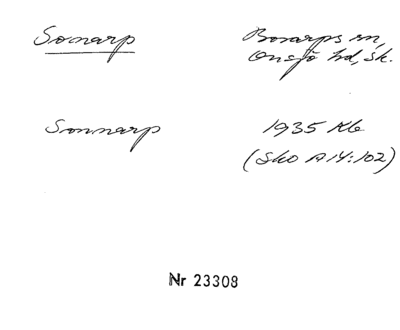 Somarp
Bosarps sn,
Onsjö hd, Sk.
Sonnarp
1935 Kb
(Sko A 14:102)
Nr 23308